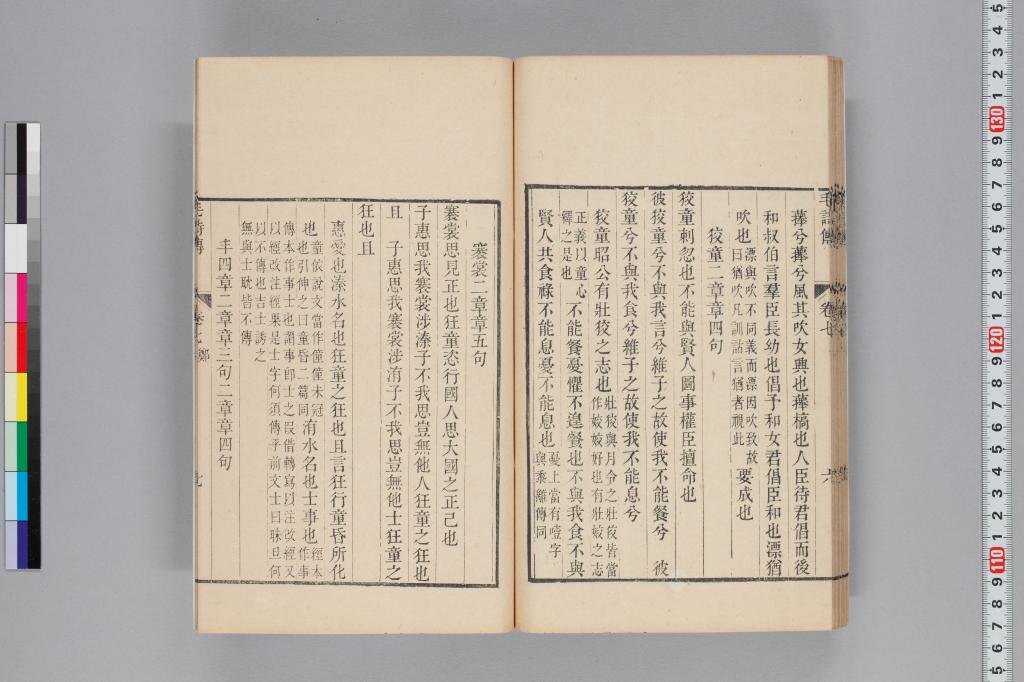 蘀兮蘀兮風其吹女興也蘀槁也人臣待君倡而後
和叔伯言羣臣長幼也倡予和女君倡臣和也漂猶
吹也漂與吹不同義而漂因吹致故曰猶吹凡訓詁言猶者視此要成也
狡童二章章四句
狡童刺忽也不能與賢人圖事權臣擅命也
彼狡童兮不與我言兮維子之故使我不能餐兮 彼
狡童兮不與我食兮維子之故使我不能息兮
狡童昭公有壯狡之志也壯狡與月令之壯佼皆當作姣姣好也有壯姣之志
正義以童心釋之是也不能餐憂懼不遑餐也不與我食不與
賢人共食祿不能息憂不能息也憂上當有噎字與黍離傳同
褰裳二章章五句
褰裳思見正也狂童恣行國人思大國之正己也
子惠思我褰裳涉溱子不我思豈無他人狂童之狂也
且 子惠思我褰裳涉洧子不我思豈無他士狂童之
狂也且
惠愛也溱水名也狂童之狂也且言狂行童昏所化
也童依說文當作僮僮未冠也引伸之曰童昏二篇同洧水名也士事也經本作事
傳本作事士也謂事卽士之叚借轉寫以注改經又
以經改注經果是士字何須傳乎前文士曰昧旦何
以不傳也吉士誘之
無與士耽皆不傳
丰四章二章章三句二章章四句
毛詩傳
卷七
六
毛詩傳
卷七 鄭
七